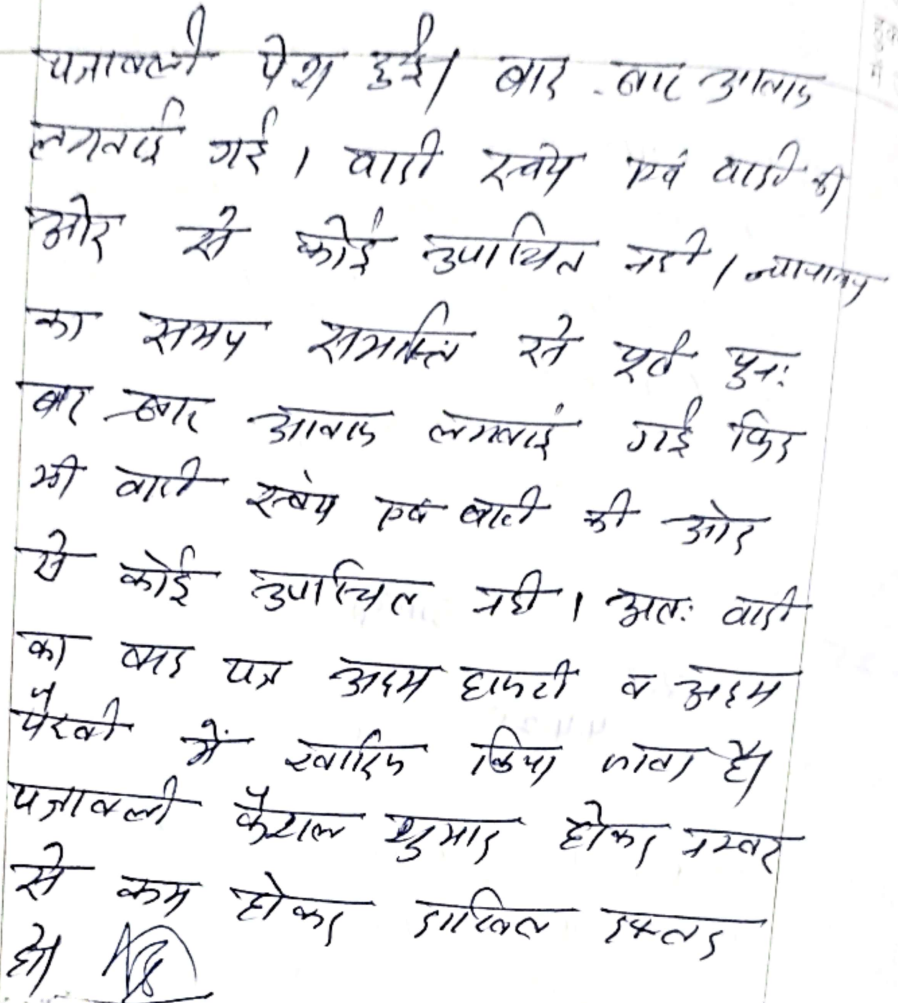 पत्रावली पेश हुई। बार-बार आवाज
लगवाई गई। वादी स्वयं एवं वादी की
ओर से कोई उपस्थित नहीं। न्यायालय
का समय समाप्ति से पूर्व पुनः
बार-बार आवाज लगवाई गई फिर
भी वादी स्वयं एवं वादी की ओर
से कोई उपस्थित नहीं। अतः वादी
का वाद पत्र अदम हाजरी व अदम
पैरवी में खारिज किया जाता है।
पत्रावली फैसल शुमार होकर नम्बर
से कम होकर दाखिल दफ्तर
हो।